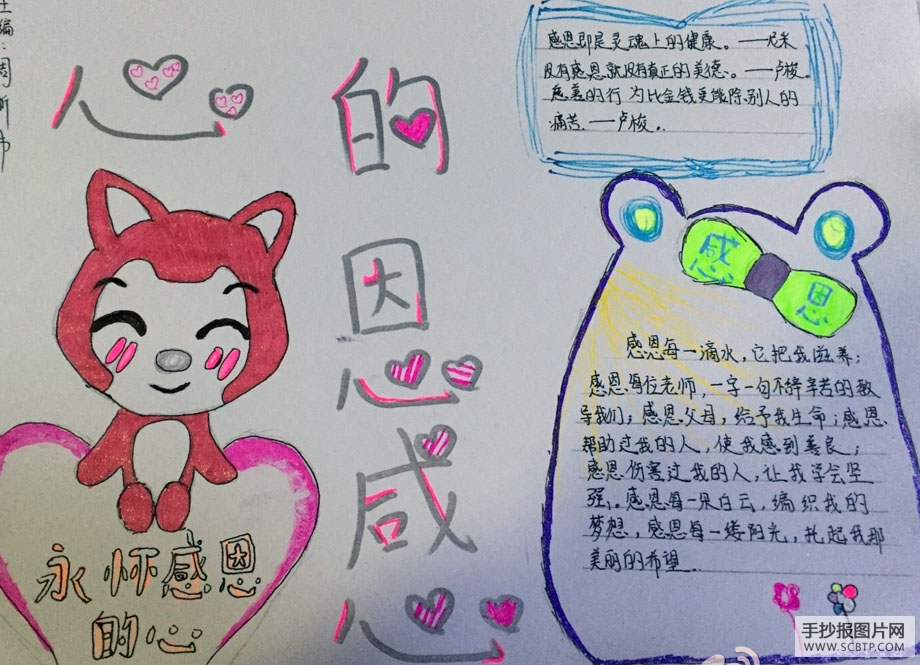 主编:周
心的
恩
感
永怀感恩
的心
感恩即是灵魂上的健康。——尼采
没有感恩就没有真正的美德。——卢梭。
慈善的行为比金钱更能除别人的
痛苦.——卢梭.
感恩
感恩每一滴水,它把我滋养;
感恩每位老师,一字一句不辞辛苦的教
导我们;感恩父母,给予我生命;感恩
帮助过我的人,使我感到善良;
感恩伤害过我的人,让我学会坚
强,感恩每一朵白云,编织我的
梦想,感恩每一缕阳光,托起我那
美丽的希望..
手抄报图片网
WWW.SCBTP.COM